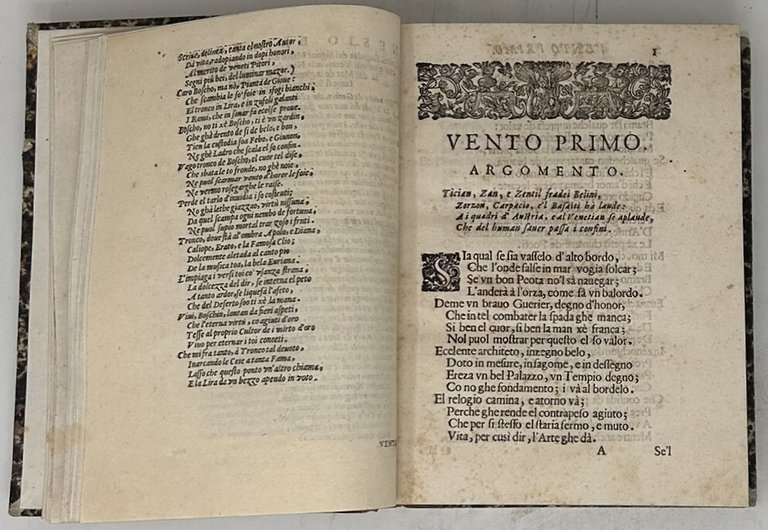 Scriue, delinea, canta el nostro Autor;
Dà vita, radopiando in dopi honori,
Al merito de veneti Pitori,
Segni più bei, del luminar mazor.)
Caro Boscho, ma nò, Pianta de Gioue:
Che scambia le so' foie in sfogi bianchi;
El tronco in Lira, e in zufoli galanti
I Rami, che in sonar fa ecelse proue.
Boscho, no ti xè Boscho, ti è vn zardin,
Che ghà drento de sì de belo, e bon,
Tien la custodia soa Febo, e Giunon;
Nè ghè Ladro che scala el so confin.
Vago tronco de Boscho, el cuor tel dise,
Che sbata le to fronde, no ghè noie,
Ne puol scarmar vento d'horor le foie;
Ne vermo roseghar ghe le raise.
Perde el tarlo d'inuidia i so costruti;
No ghà lethegiazzo, virtù nissuna,
Da quel scampa ogni nembo de fortuna,
Ne puol supio mortal trar zoso i fruti.
Tronco, doue stà al'ombra Apolo, e Diana,
Caliope, Erato, e la Famosa Clio;
Dolcemente aletada al canto pio
De la musica toa, la bela Euriana.
L'impiaga i versi toi co' vsanza strana,
La dolcezza del dir, se interna el peto
A tanto ardor, se liquefà l'afeto,
Che del Deserto soo ti xè la mana.
Viui, Boschin, lontan da fieri aspeti,
Che l'eterna virtù, co aguti d'oro
Tesse al proprio Cultor de i mirto d'oro
Viuo per eternar i toi conceti.
Che mi fra tanto, à Tronco tal deuoto,
Inarcando le Cese a tanta Fama,
Lasso che questo ponto vn'altro chiama;
E la Lira da vn bezzo apendo in voto.
VENTO
1
VENTO PRIMO.
ARGOMENTO.
Tician, Zan, e Zentil fradei Belini,
Zorzon, Carpacio, e'l Basaiti hà laude:
Ai quadri d'Austria, e al Venetian se aplaude,
Che del human sauer passa i confini.
Sia qual se sia vasselo d'alto bordo,
Che l'onde false in mar vogia solcar;
Se vn bon Peota no'l sà nauegar;
L'anderà à l'orza, come fà vn balordo.
Deme vn brauo Guerier, degno d'honor,
Che in tel combater la spada ghe manca;
Si ben el cuor, si ben la man xè franca;
Nol puol mostrar per questo el so valor.
Ecelente architeto, inzegno belo,
Doto in mesure, in sagome, e in dessegno
Ereza vn bel Palazzo, vn Tempio degno;
Co no ghe fondamento; i và al bordelo.
El relogio camina, e atorno và;
Perche ghe rende el contrapeso agiuto;
Che per sì stesso el staria fermo, e muto.
Vita, per cusì dir, l'Arte ghe dà.
A
Se'l